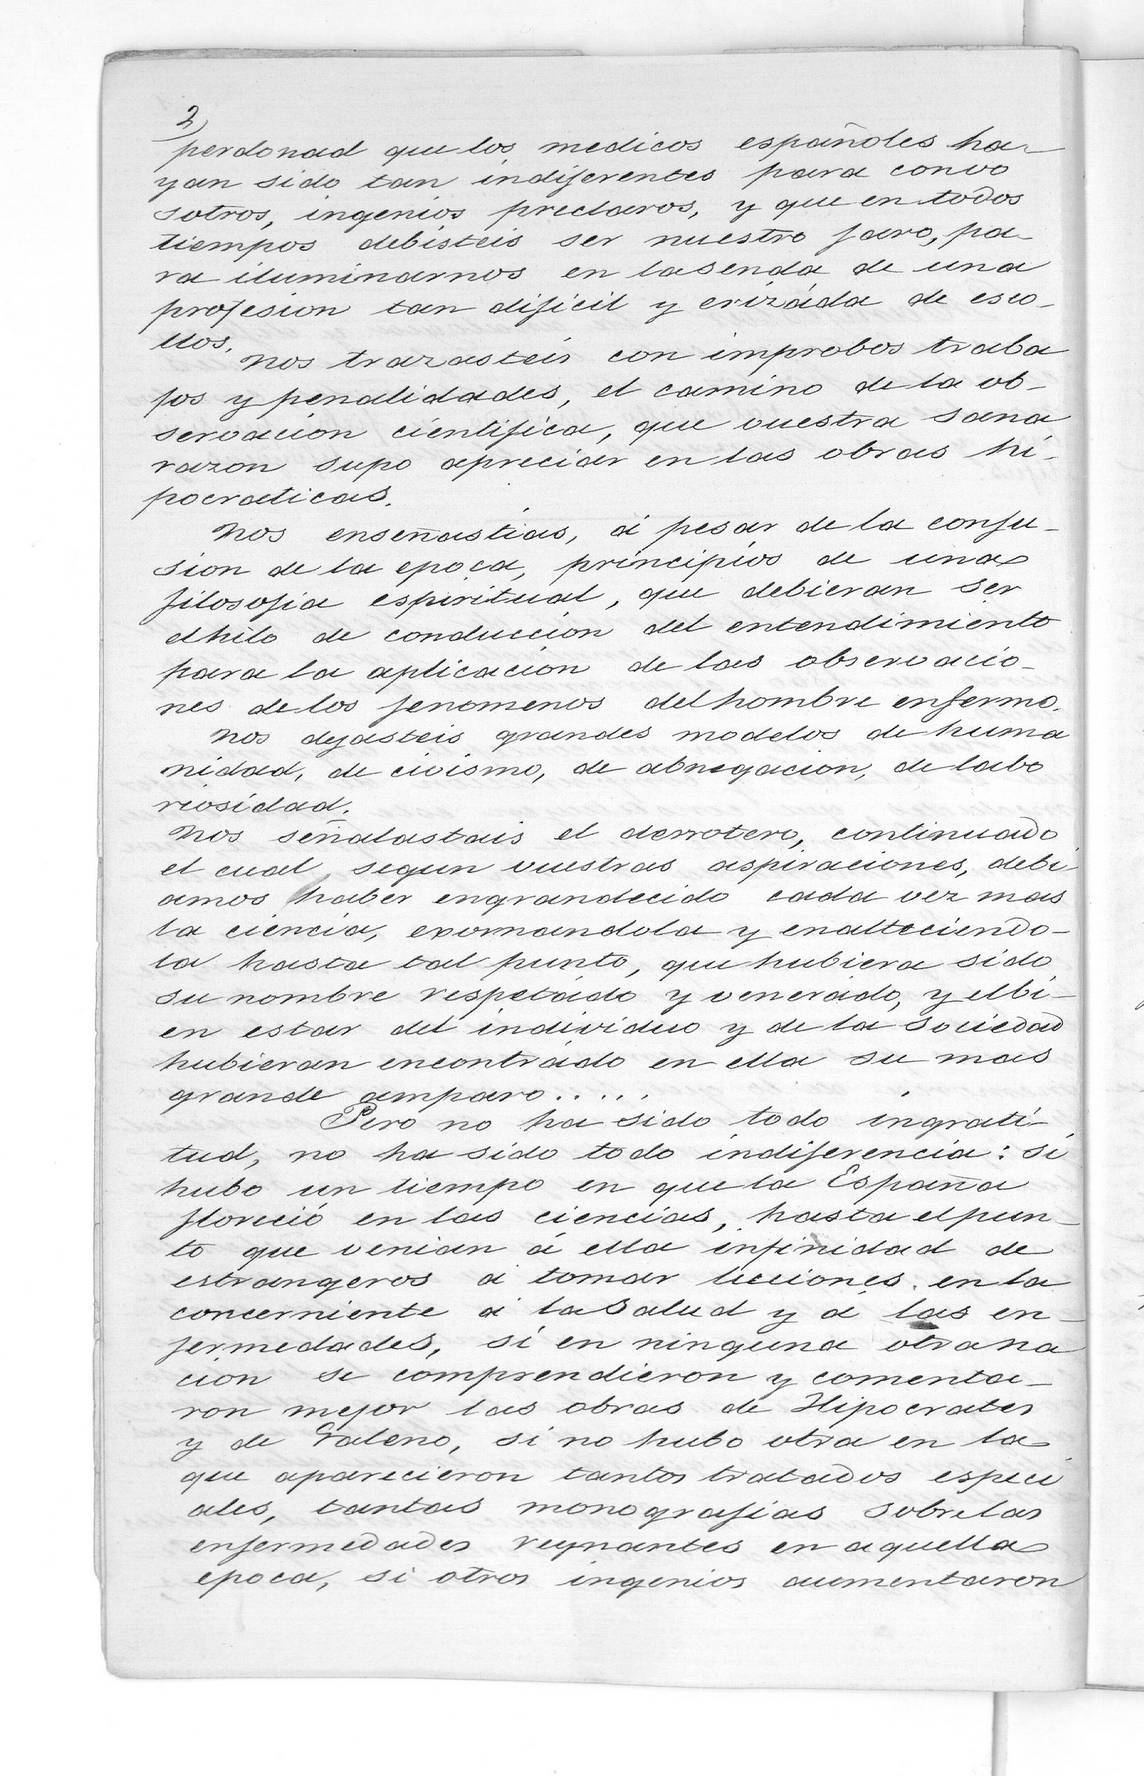 2
perdonad que los medicos españoles ha-
yan sido tan indiferentes para convo
sotros, ingenios preclaros, y que en todos
tiempos debisteis ser nuestro faro, pa-
ra iluminarnos en la senda de una
profesion tan dificil y erizáda de esco-
llos.
Nos trazasteis con improbos traba
jos y penalidades, el camino de la ob-
servacion cientifica, que vuestra sana
razon supo apreciar en las obras hi-
pocraticas.
Nos enseñastias, á pesar de la confu-
sion de la epoca, principios de una
filosofia espiritual, que debieran ser
el hilo de conduccion del entendimiento
para la aplicacion de las observacio-
nes de los fenomenos del hombre enfermo.
Nos dejasteis grandes modelos de huma
nidad, de civismo, de abnegacion, de labo
riosidad.
Nos señalastais el derrotero, continuado
el cual, segun vuestras aspiraciones, debi-
amos haber engrandecido cada vez mas
la ciencia, exornandola y enalteciendo-
la hasta tal punto, que hubiera sido
su nombre respetádo y venerádo, y el bi-
en estar del individuo y de la sociedad
hubieran encontrádo en ella su mas
grande amparo.....
Pero no ha sido todo ingrati-
tud, no ha sido todo indiferencia: si
hubo un tiempo en que la España
floreció en las ciencias, hasta el pun-
to que venian á ella infinidad de
estrangeros á tomar lecciones en la
concerniente á la salud y á las en-
fermedades, si en ninguna otra na
cion se comprendieron y comenta-
ron mejor las obras de Hipocrates
y de Galeno, si no hubo otra en la
que aparecieron tantos tratados especi
ales, tantas monografias sobre las
enfermedades reynantes en aquella
epoca, si otros ingenios aumentaron